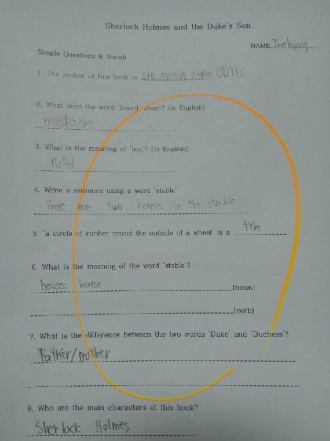 Sherlock Holmes and the Duke's Son
NAME:
Simple Questions & Vocab
1. The author of this book is SIR ARTHUR CONAN DOYLE
2. What does the word 'beard' mean? (in English)
mustache
3. What is the meaning of 'inn'? (in English)
Hotel
4. Write a sentence using a word 'stable'
There are two horses in the stable
5. 'a circle of rubber round the outside of a wheel' is a tyre
6. What is the meaning of the word 'stable'?
houses house (noun)
(verb)
7. What is the difference between the two words 'Duke' and 'Duchess'?
father/mother
8. Who are the main characters of this book?
Sherlock Holmes